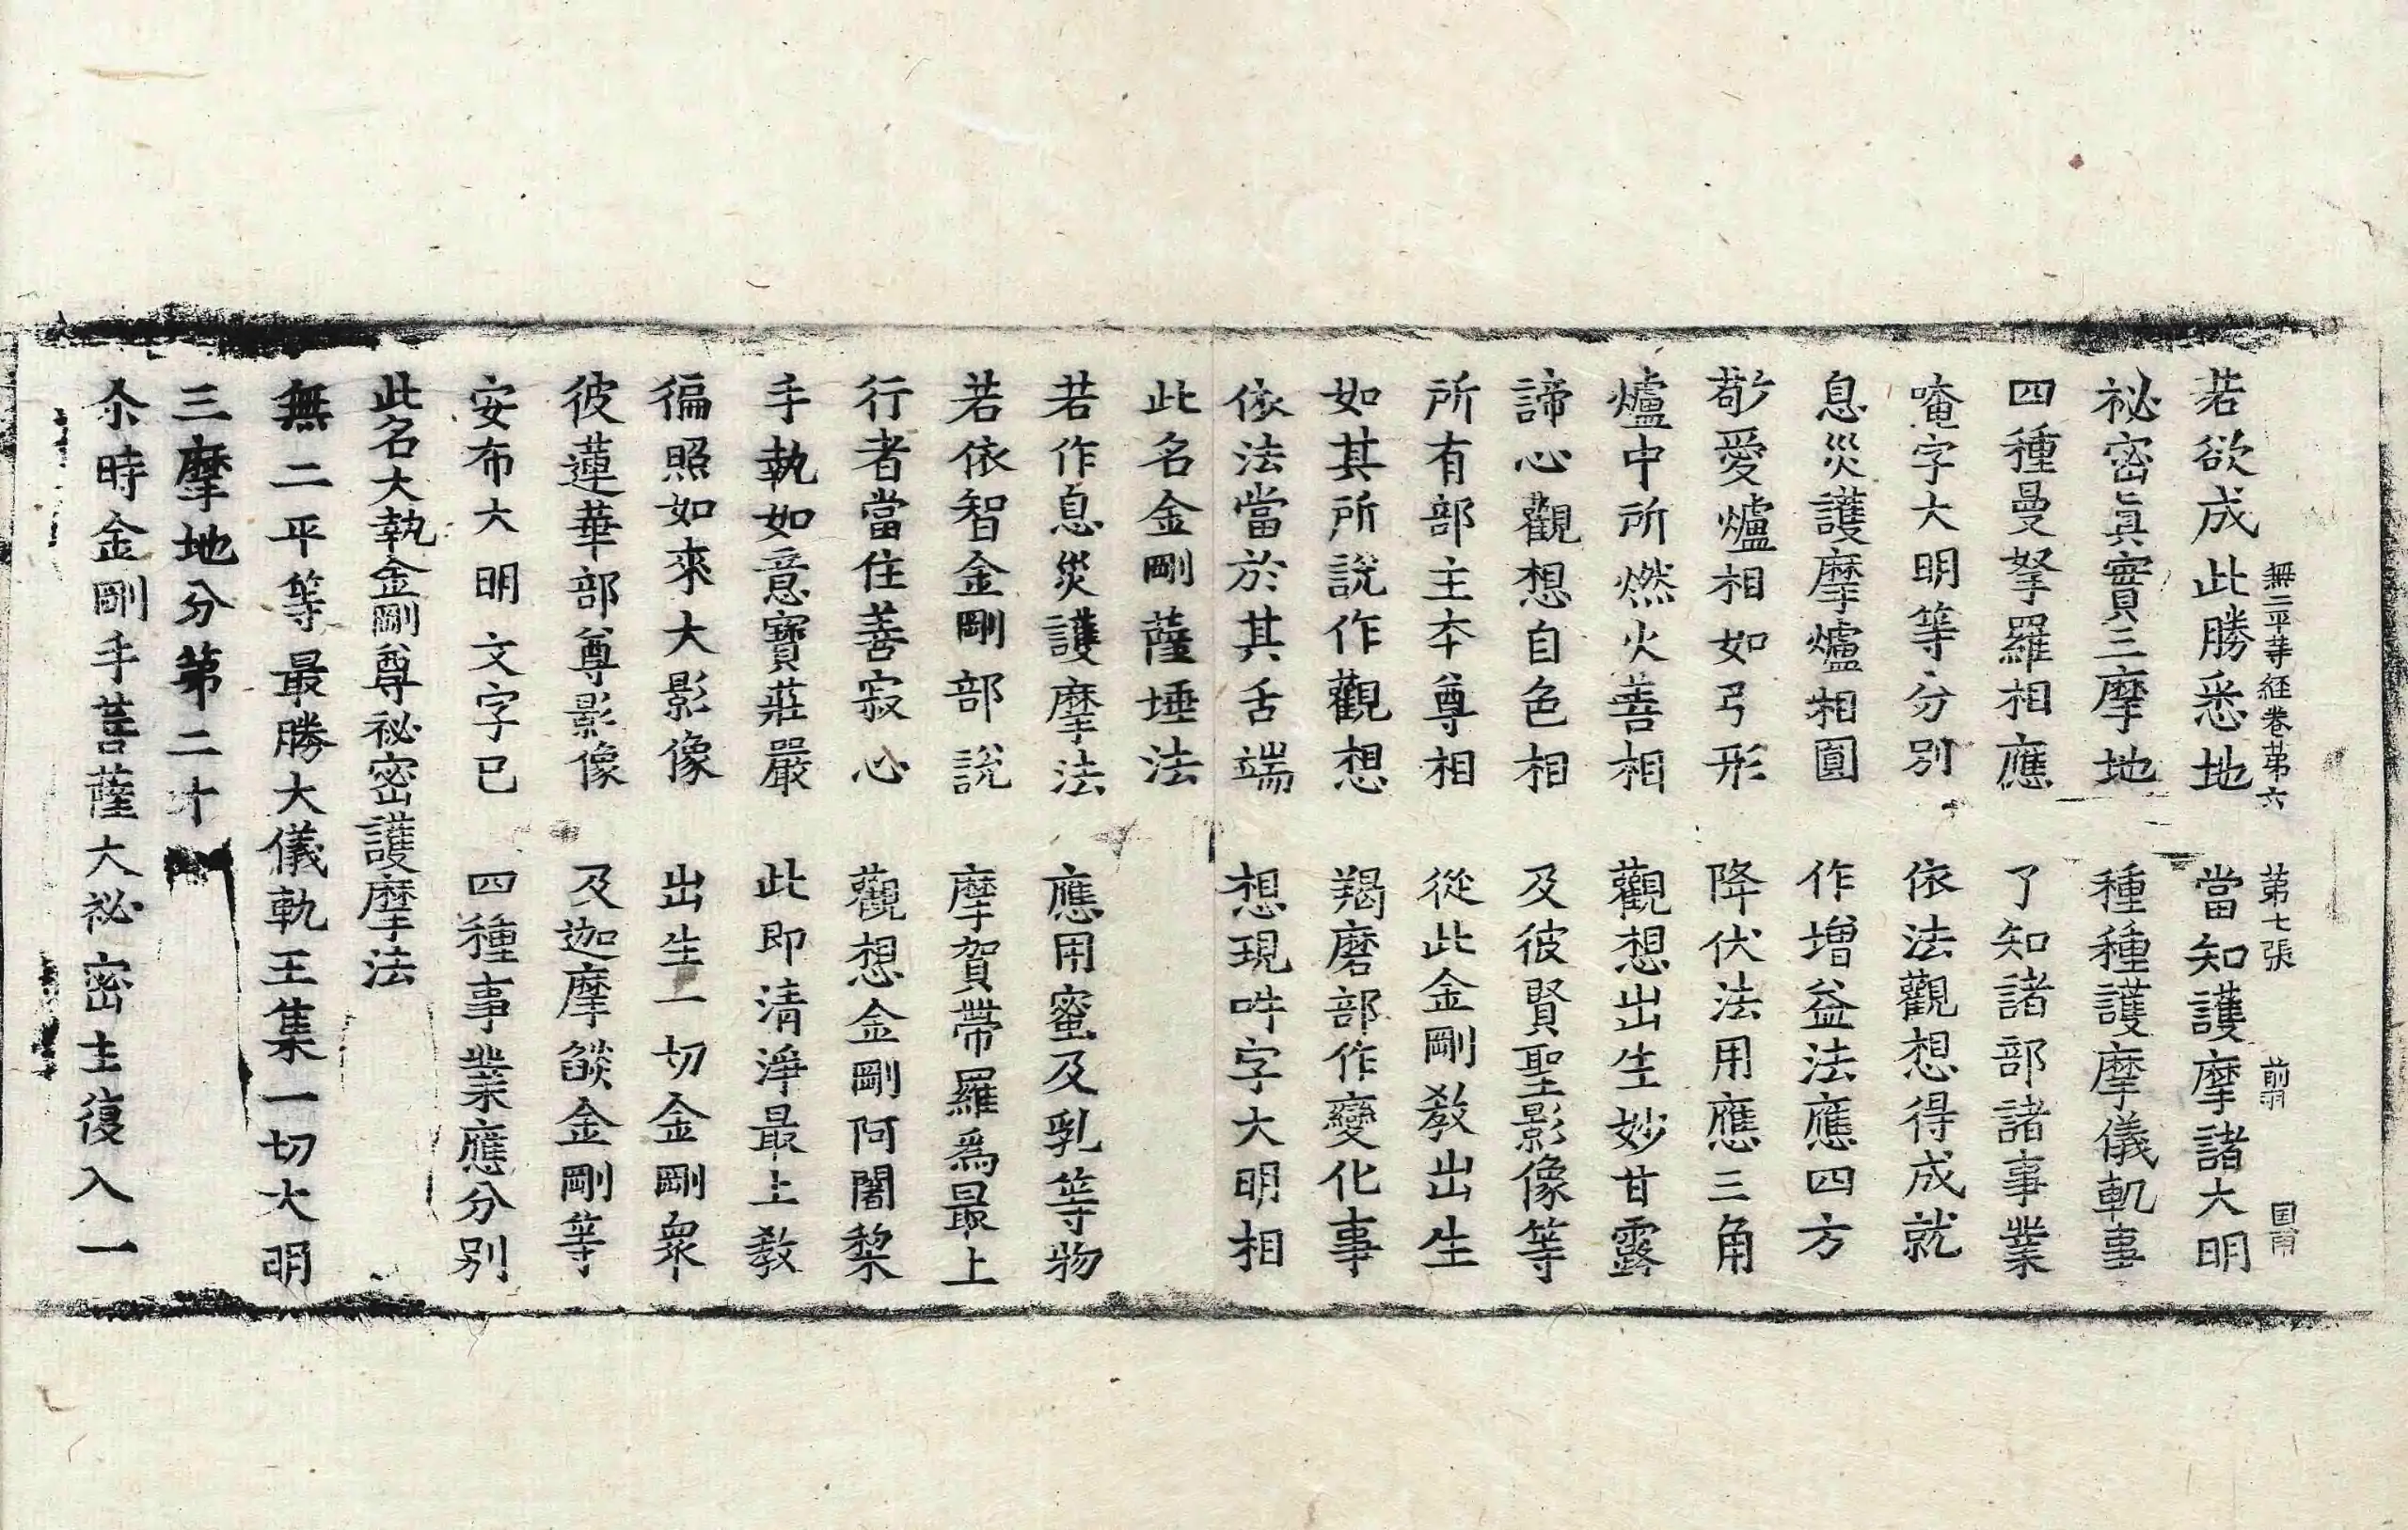 無二平等経卷苐六 苐七張 前羽 国南
若欲成此勝悉地 當知護摩諸大明
祕密眞實三摩地 種種護摩儀軌事
四種曼拏羅相應 了知諸部諸事業
唵字大明等分別 依法觀想得成就
息災護摩爐相圓 作增益法應四方
敬愛爐相如弓形 降伏法用應三角
爐中所燃火善相 觀想出生妙甘露
諦心觀想自色相 及彼賢聖影像等
所有部主夲尊相 從此金剛教出生
如其所說作觀想 羯磨部作變化事
依法當於其舌端 想現吽字大明相
此名金剛薩埵法
若作息災護摩法 應用蜜及乳等物
若依智金剛部說 摩賀帶羅爲最上
行者當住善寂心 觀想金剛阿闍棃
手執如意寶莊嚴 此即清淨最上教
徧照如來大影像 出生一切金剛衆
彼蓮華部尊影像 及迦摩燄金剛等
安布大明文字已 四種事業應分別
此名大執金剛尊祕密護摩法
無二平等最勝大儀軌王集一切大明
三摩地分苐二十
尒時金剛手菩薩大祕密主復入一